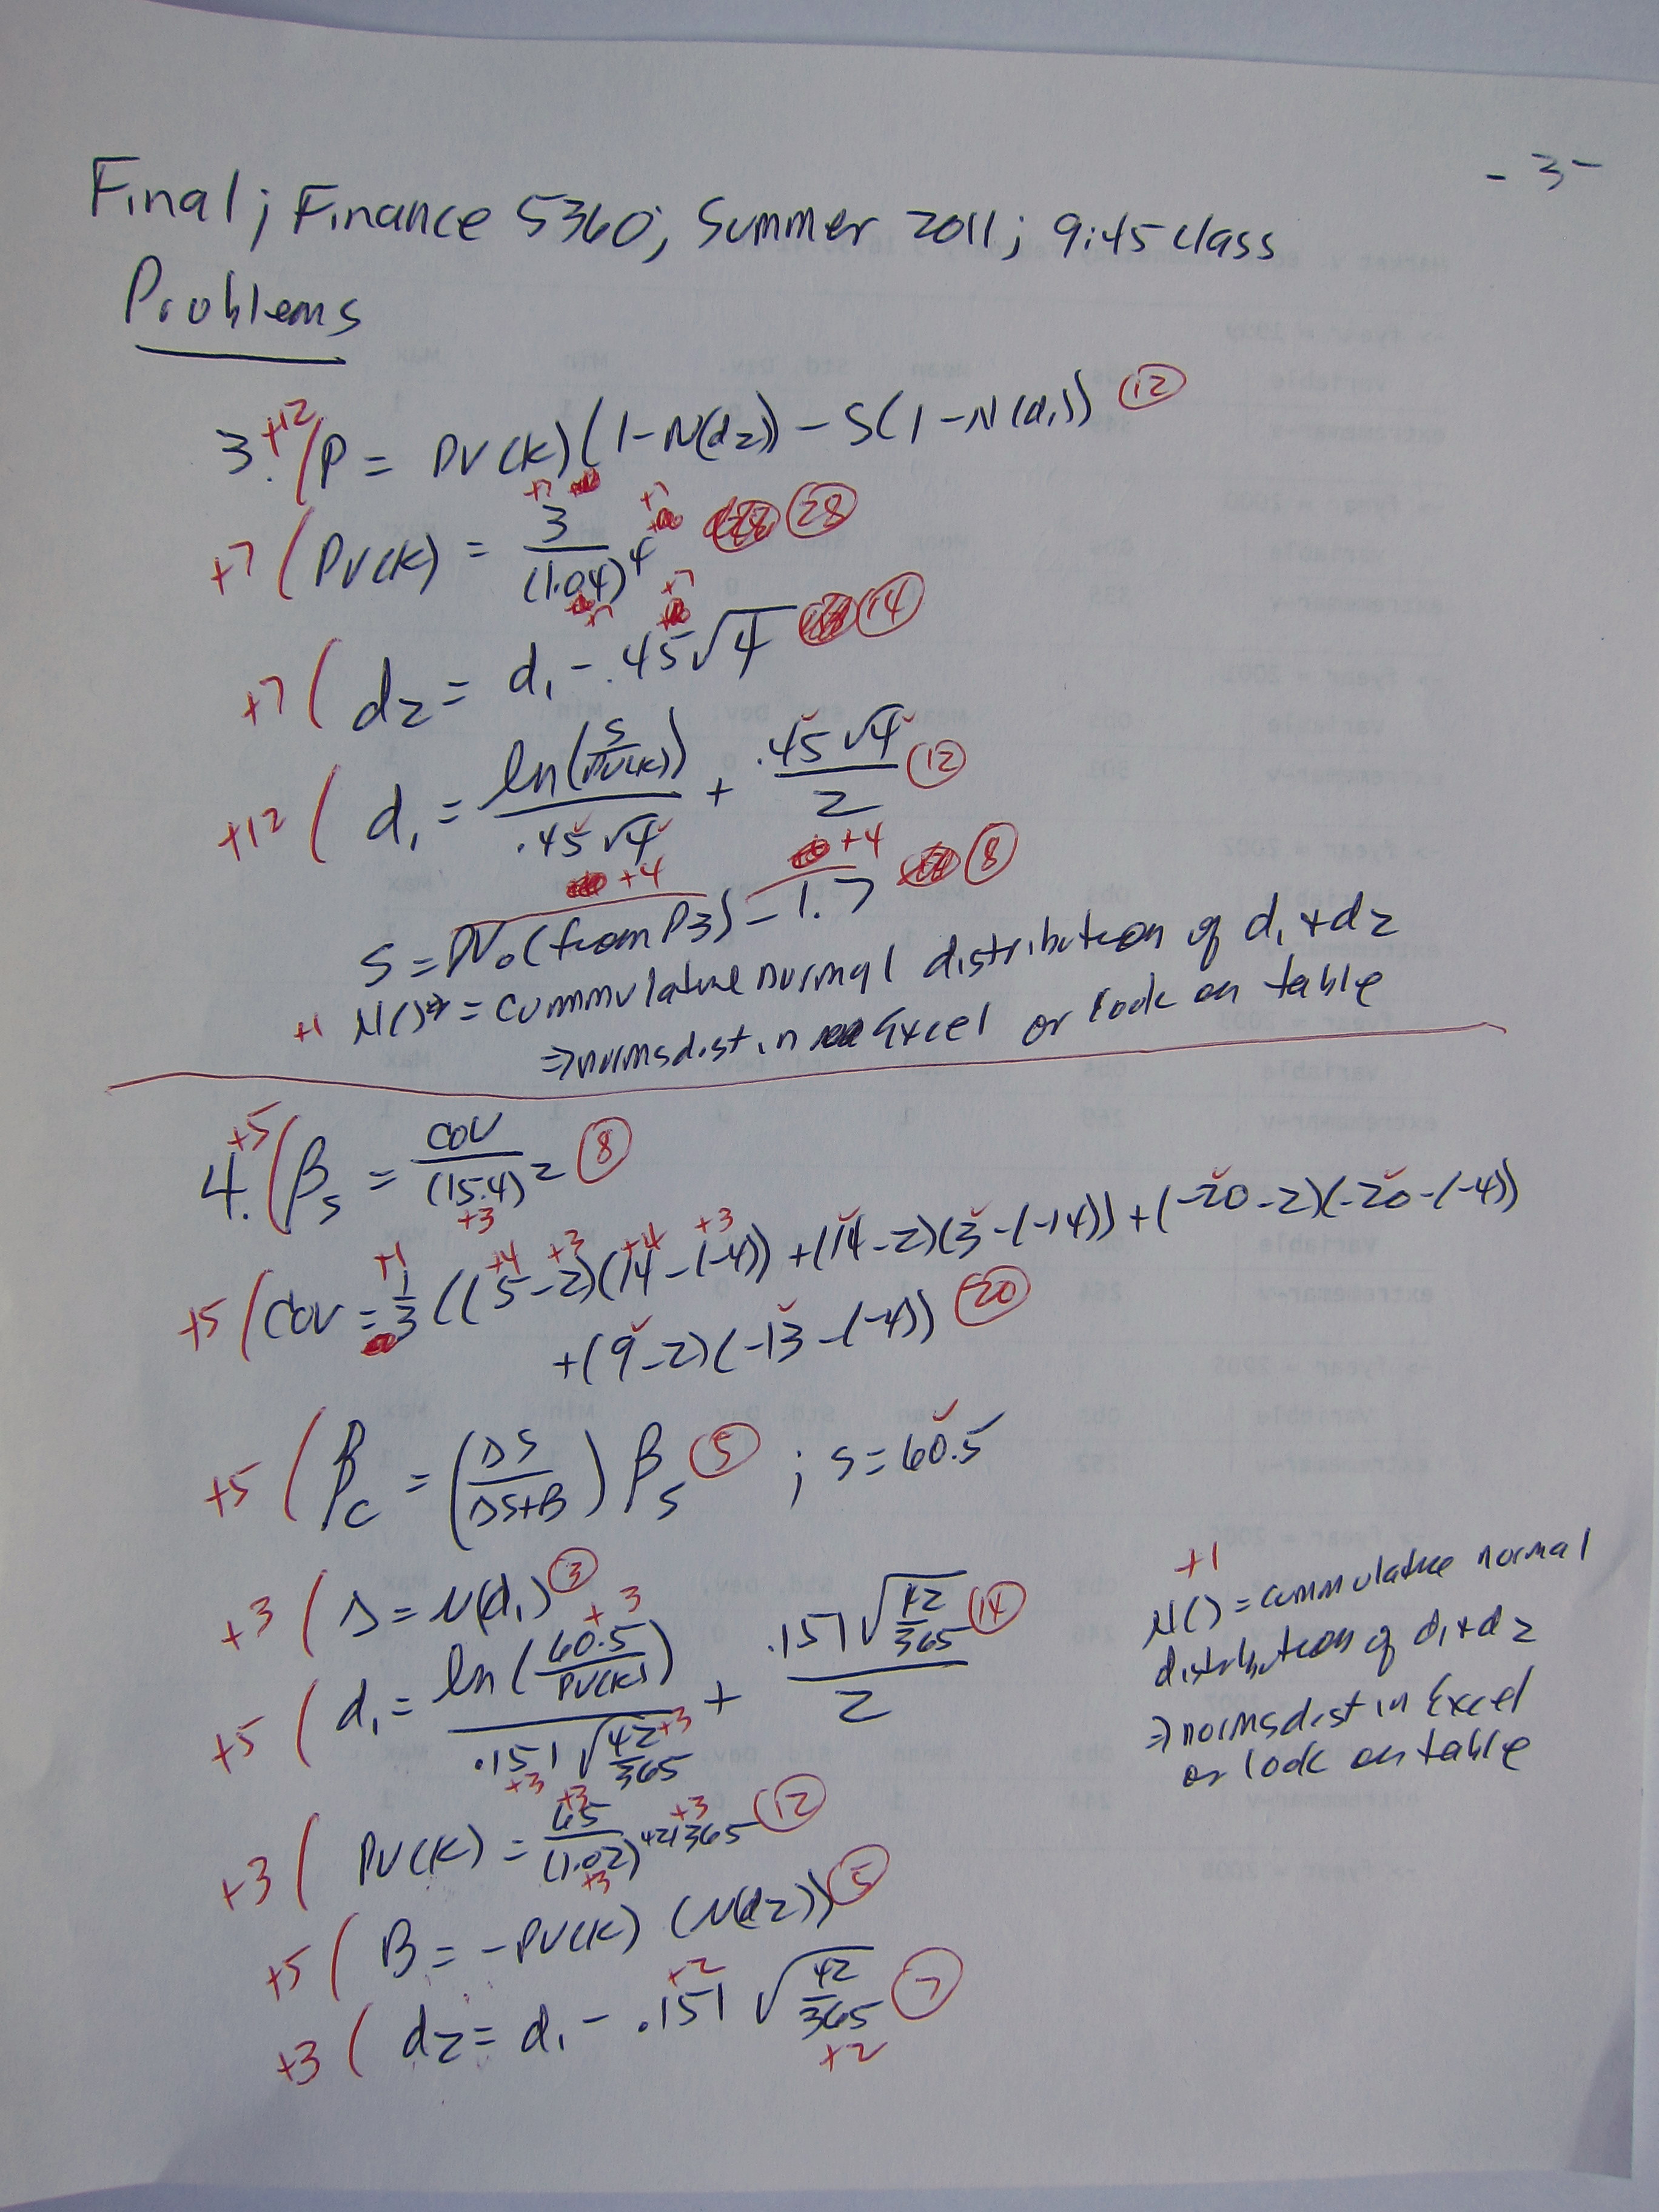 - 3 -
Final; Finance 5360; Summer 2011; 9:45 class
Problems
3. +12 ( P = PV(K)(1-N(d2)) - S(1-N(d1)) (12)
+7 +7
+7 ( PV(K) = 3/(1.04)^4 (28)
+7 +7
+7 ( d2 = d1 - .45√4 (14)
+12 ( d1 = ln(S/PV(K))/.45√4 + .45√4/2 (12)
+4 +4
S = PV0 (from P3) - 1.7 (8)
+1 N() = cummulative normal distribution of d1 + d2
⇒ normsdist in Excel or look on table
4. +5 ( βs = cov/(15.4)^2 (8)
+3
+1 +4 +3 +4 +3
+5 ( Cov = 1/3 ((5-2)(14-(-4)) + (14-2)(3-(-14)) + (-20-2)(-20-(-4))
+(9-2)(-13-(-4)) (20)
+5 ( βc = (ΔS/ΔS+B) βs (5) ; S = 60.5
+3 ( Δ = N(d1) (3)
+3
+5 ( d1 = ln(60.5/PV(K))/.151√42/365 + .151√42/365/2 (14)
+3 +3
+1
N() = cummulative normal
distribution of d1 + d2
⇒ normsdist in Excel
or look on table
+3 +3
+3 ( PV(K) = 65/(1.02)^42/365 (12)
+3
+5 ( B = -PV(K) (N(d2)) (5)
+2
+3 ( d2 = d1 - .151 √42/365 (7)
+2